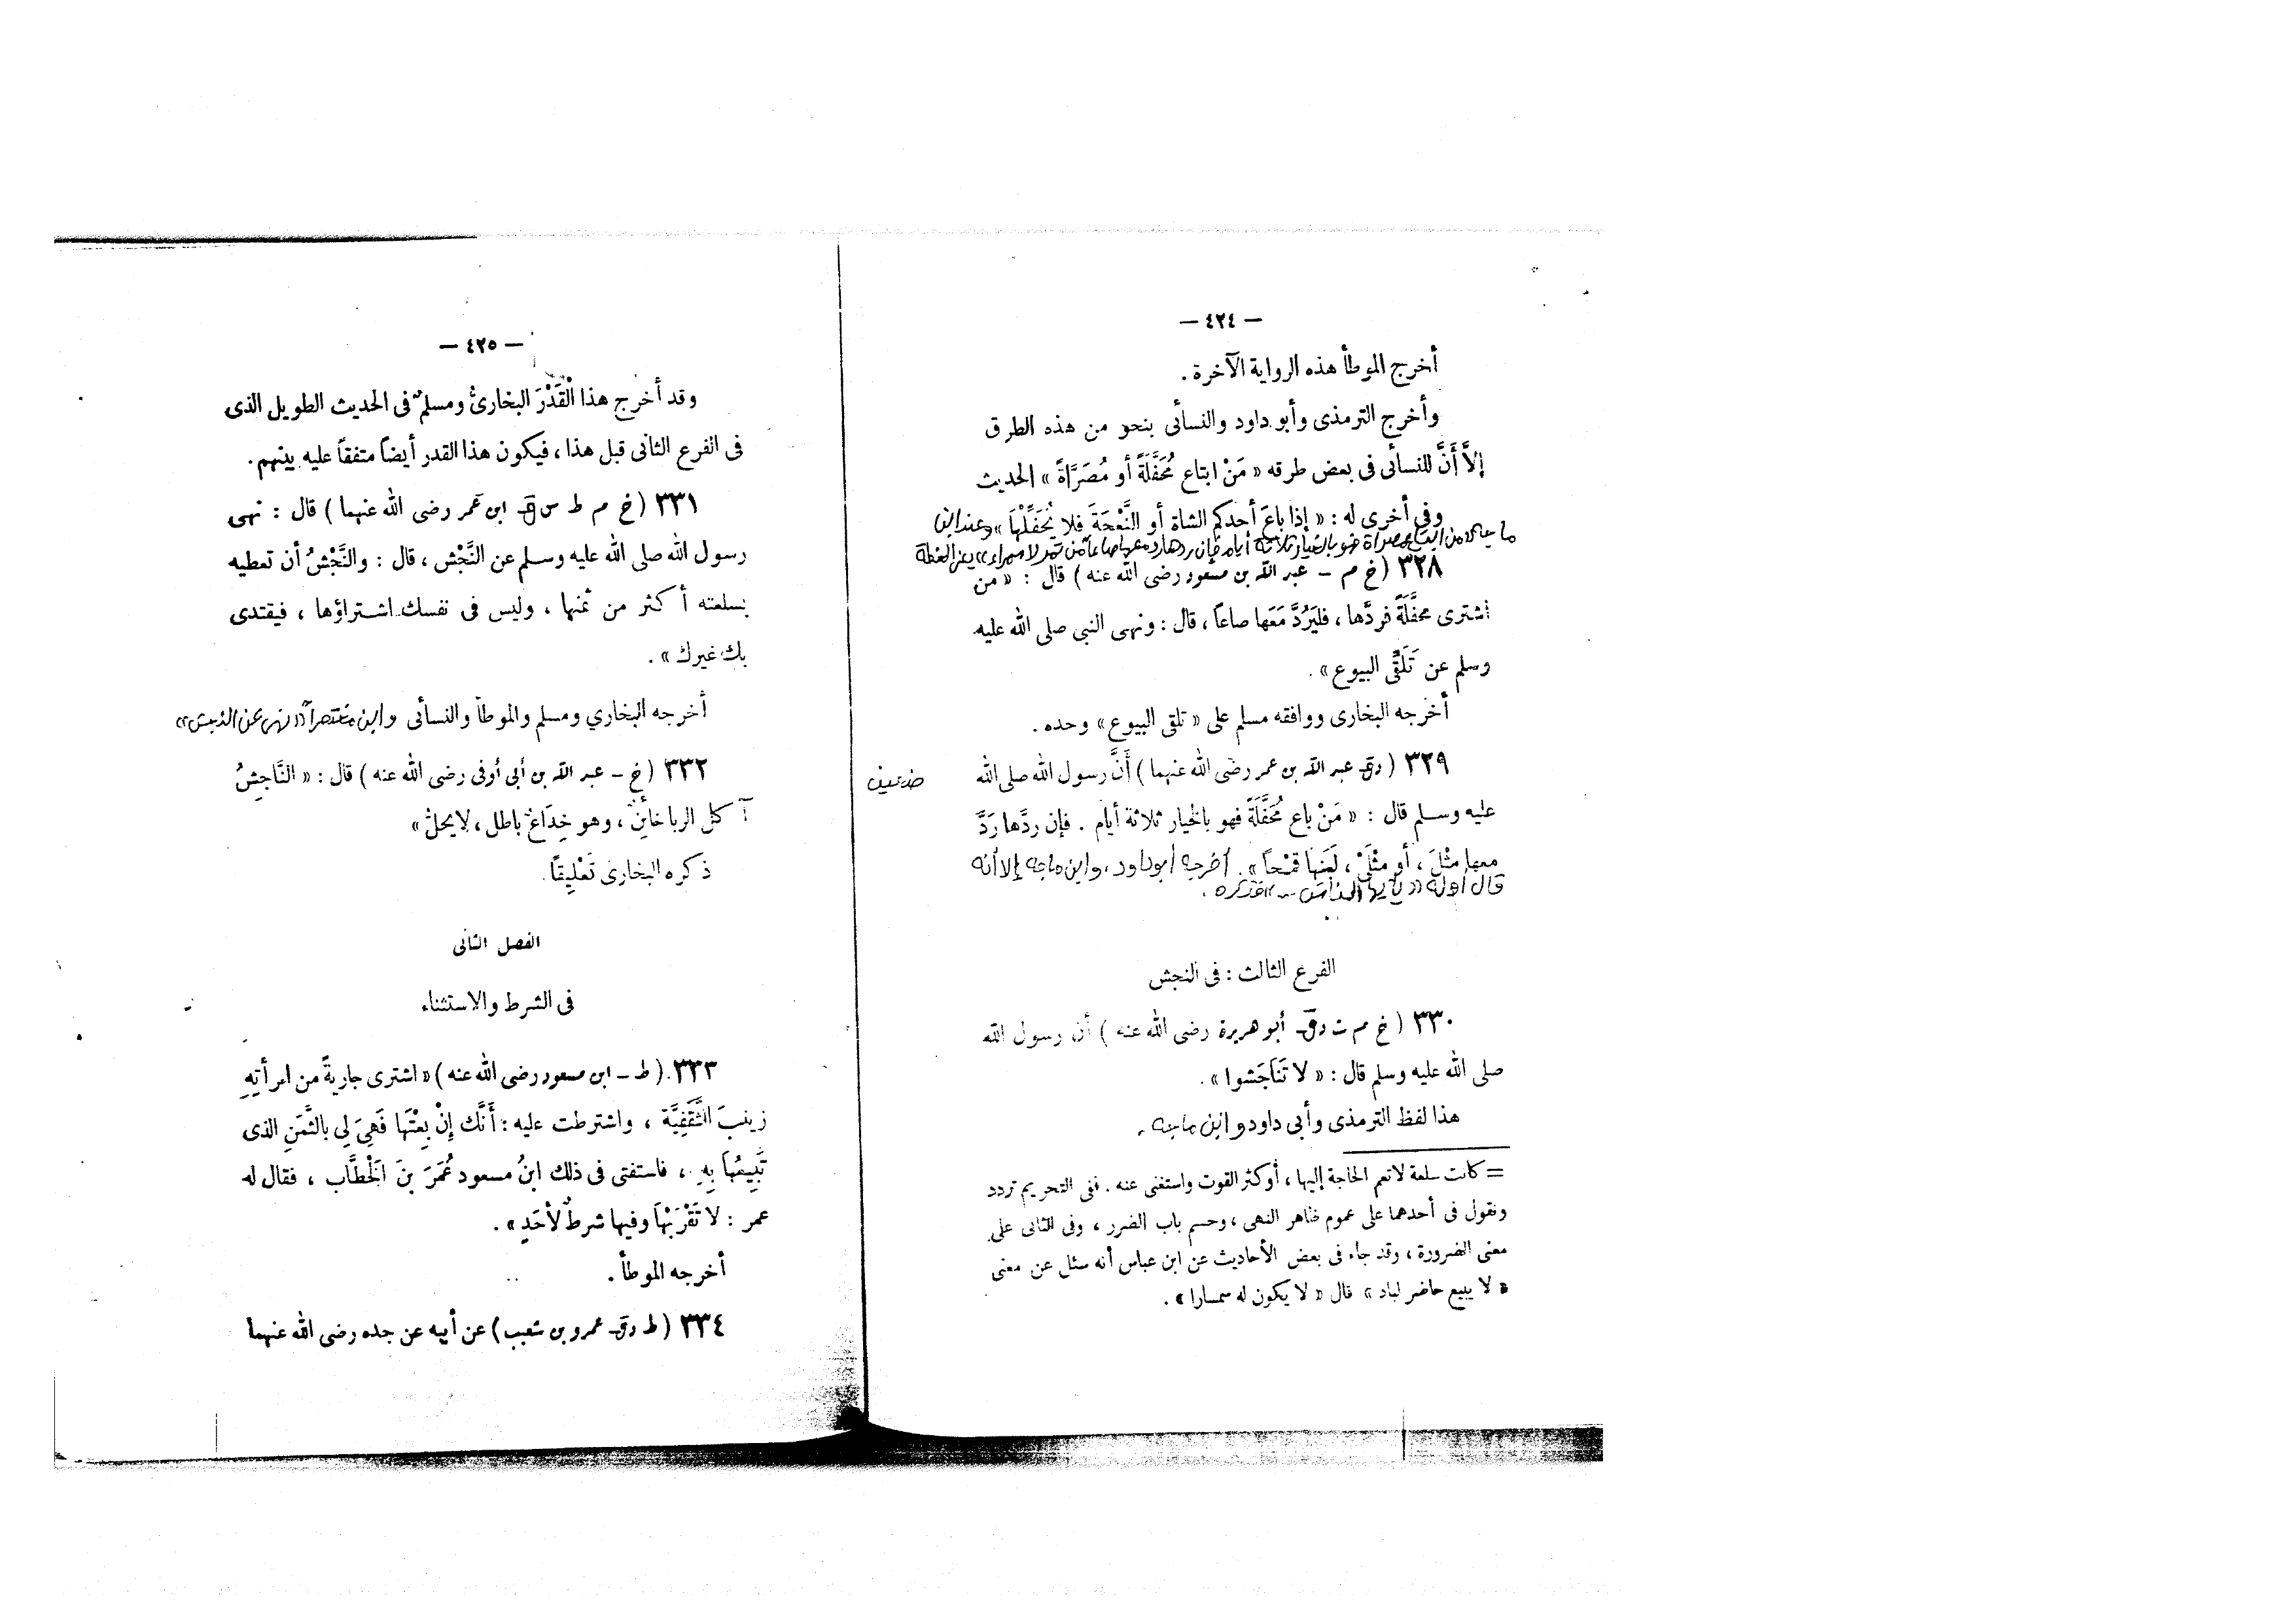 — ٤٢٤ —
أخرج الموطأ هذه الرواية الآخرة .
وأخرج الترمذى وأبو داود والنسائى بنحو من هذه الطرق
إلاَّ أَنَّ للنسائى فى بعض طرقه « مَنْ ابتاع مُحَفَّلَةً أو مُصَرَّاةً » الحديث
وفى أخرى له : « إذا باعَ أحدكم الشاة أو النَّعْجَةَ فلا يُحَفِّلْهَا » وعند ابن
ماجه من ابتاع مصراة فهو بالخيار ثلاثة أيام فإن ردها رد معها صاعًا من تمر لا سمراء » يعنى الحنطة
٣٢٨ ( خ م – عبد الله بن مسعود رضى الله عنه ) قال : « من
اشترى محفَّلَةً فردَّها ، فليَرُدَّ مَعَها صاعاً ، قال : ونهى النبى صلى الله عليه
وسلم عن تَلَقِّى البيوع » .
أخرجه البخارى ووافقه مسلم على « تلقى البيوع » وحده .
٣٢٩ ( د ق – عبد الله بن عمر رضى الله عنهما ) أَنَّ رسول الله صلى الله
ضعيف
عليه وسلم قال : « مَنْ باع مُحَفَّلَةً فهو بالخيار ثلاثة أيام . فإن ردَّها رَدَّ
معها مثْلَ ، أو مثْلَىْ ، لَبَنِها قمْحاً » . أخرجه أبو داود ، وابن ماجه إلا أنه
قال أوله « يا أيها الناس -- » فذكره .
الفرع الثالث : فى النجش
٣٣٠ ( خ م ت د ق – أبو هريرة رضى الله عنه ) أن رسول الله
صلى الله عليه وسلم قال : « لا تَنَاجَشوا » .
هذا لفظ الترمذى وأبى داود وابن ماجه .
= كانت سلعة لاتعم الحاجة إليها ، أوكثر القوت واستغنى عنه . ففى التحريم تردد
ونقول فى أحدهما على عموم ظاهر النهى ، وحسم باب الضرر ، وفى الثانى على
معنى الضرورة ، وقد جاء فى بعض الأحاديث عن ابن عباس أنه سئل عن معنى
« لا يبيع حاضر لباد » قال « لا يكون له سمسارا » .
— ٤٢٥ —
وقد أخرج هذا الْقَدْرَ البخارىُّ ومسلمٌ فى الحديث الطويل الذى
فى الفرع الثانى قبل هذا ، فيكون هذا القدر أيضاً متفقاً عليه بينهم .
٣٣١ ( خ م ط س ق – ابن عمر رضى الله عنهما ) قال : نهى
رسول الله صلى الله عليه وسلم عن النَّجْش ، قال : والنَّجْشُ أن تعطيه
بسلعته أكثر من ثمنها ، وليس فى نفسك اشتراؤها ، فيقتدى
بك غيرك » .
أخرجه البخاري ومسلم والموطأ والنسائى وابن مختصراً « نهى عن النجش »
٣٣٢ ( خ – عبد الله بن أبى أوفى رضى الله عنه ) قال : « النَّاجِشُ
آكل الربا خائِنٌ ، وهو خِدَاعٌ باطل ، لايحلُّ »
ذكره البخارى تَعْلِيقاً .
الفصل الثانى
فى الشرط والاستثناء
٣٣٣ ( ط – ابن مسعود رضى الله عنه ) « اشترى جاريةً من امرأتِهِ
زينبَ الثَّقَفِيَّة ، واشترطت عليه : أَنَّك إِنْ بِعْتَها فَهِيَ لِي بالثَّمَنِ الذى
تَبِيعُهاَ بِهِ ، فاستفتى فى ذلك ابنُ مسعود عُمَرَ بنَ الْخَطَّاب ، فقال له
عمر : لا تَقْرَبْهَا وفيها شرطٌ لأحَدٍ » .
أخرجه الموطأ .
٣٣٤ ( ط د ق – عمرو بن شعيب ) عن أبيه عن جده رضى الله عنهما